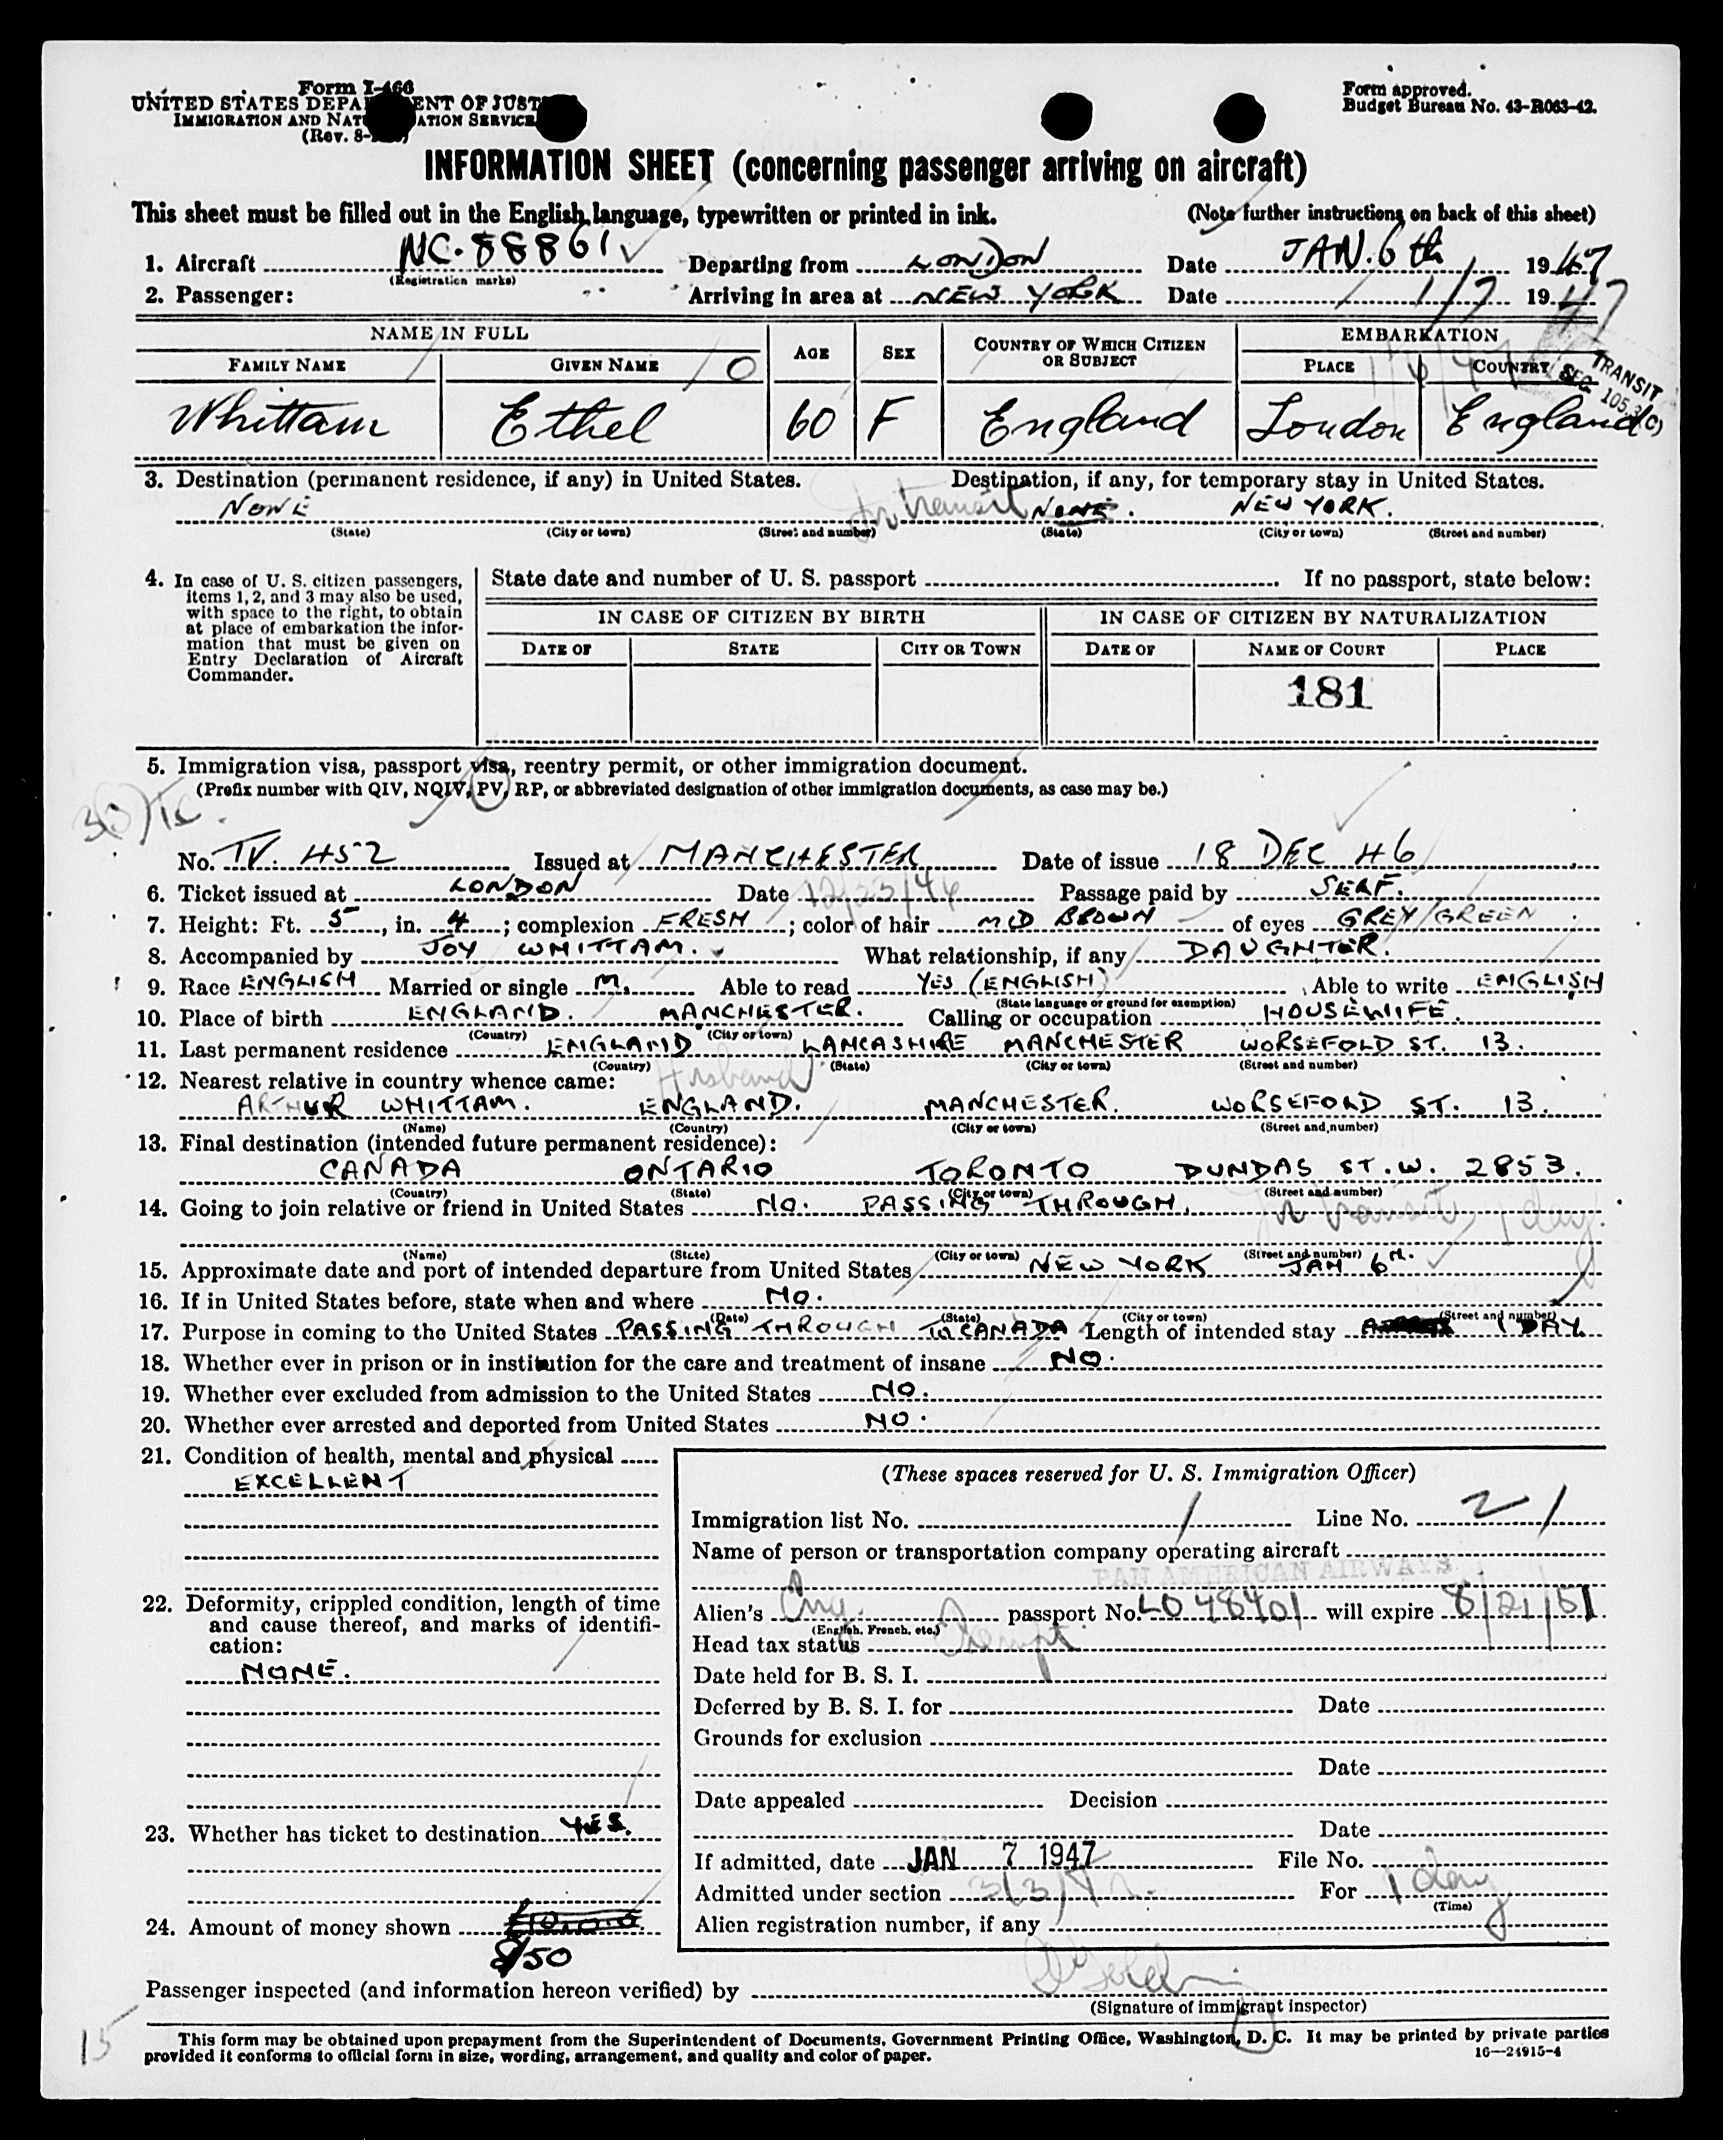 Form I-466
UNITED STATES DEPARTMENT OF JUSTICE
IMMIGRATION AND NATURALIZATION SERVICE
(Rev. 8-
Form approved.
Budget Bureau No. 43-R063-42.
INFORMATION SHEET (concerning passenger arriving on aircraft)
This sheet must be filled out in the English language, typewritten or printed in ink. (Note further instructions on back of this sheet)
1. Aircraft NC. 88861 Departing from LONDON Date JAN. 6th 1947
(Registration marks)
2. Passenger: Arriving in area at NEW YORK Date 1/7 1947
NAME IN FULL AGE SEX COUNTRY OF WHICH CITIZEN OR SUBJECT EMBARKATION
FAMILY NAME GIVEN NAME PLACE COUNTRY
TRANSIT
SEC. 105.3(C)
Whittam Ethel 60 F England London England
3. Destination (permanent residence, if any) in United States. Destination, if any, for temporary stay in United States.
NONE In transit NONE. NEW YORK.
(State) (City or town) (Street and number) (State) (City or town) (Street and number)
4. In case of U. S. citizen passengers, items 1, 2, and 3 may also be used, with space to the right, to obtain at place of embarkation the information that must be given on Entry Declaration of Aircraft Commander.
State date and number of U. S. passport If no passport, state below:
IN CASE OF CITIZEN BY BIRTH IN CASE OF CITIZEN BY NATURALIZATION
DATE OF STATE CITY OR TOWN DATE OF NAME OF COURT PLACE
181
5. Immigration visa, passport visa, reentry permit, or other immigration document.
(Prefix number with QIV, NQIV, PV, RP, or abbreviated designation of other immigration documents, as case may be.)
No. TV. 452 Issued at MANCHESTER Date of issue 18 DEC 46
6. Ticket issued at LONDON Date 12/23/46 Passage paid by SELF.
7. Height: Ft. 5, in. 4; complexion FRESH; color of hair MID BROWN of eyes GREY/GREEN
8. Accompanied by JOY WHITTAM. What relationship, if any DAUGHTER.
9. Race ENGLISH Married or single M. Able to read YES (ENGLISH) Able to write ENGLISH
(State language or ground for exemption)
10. Place of birth ENGLAND. MANCHESTER. Calling or occupation HOUSEWIFE.
(Country) (City or town)
11. Last permanent residence ENGLAND LANCASHIRE MANCHESTER WORSEFOLD ST. 13.
(Country) (State) (City or town) (Street and number)
12. Nearest relative in country whence came: Husband
ARTHUR WHITTAM. ENGLAND. MANCHESTER. WORSEFOLD ST. 13.
(Name) (Country) (City or town) (Street and number)
13. Final destination (intended future permanent residence):
CANADA ONTARIO TORONTO DUNDAS ST. W. 2853.
(Country) (State) (City or town) (Street and number)
14. Going to join relative or friend in United States NO. PASSING THROUGH.
In transit, 1 day.
(Name) (State) (City or town) (Street and number)
15. Approximate date and port of intended departure from United States NEW YORK JAN 6th.
16. If in United States before, state when and where NO.
(Date) (State) (City or town) (Street and number)
17. Purpose in coming to the United States PASSING THROUGH TO CANADA Length of intended stay 1 DAY.
18. Whether ever in prison or in institution for the care and treatment of insane NO.
19. Whether ever excluded from admission to the United States NO.
20. Whether ever arrested and deported from United States NO.
21. Condition of health, mental and physical
EXCELLENT
22. Deformity, crippled condition, length of time and cause thereof, and marks of identification:
NONE.
23. Whether has ticket to destination YES.
24. Amount of money shown £10.0.0.
$50
(These spaces reserved for U. S. Immigration Officer)
Immigration list No. 1 Line No. 21
Name of person or transportation company operating aircraft
PAN AMERICAN AIRWAYS
Alien's Eng. passport No. LO 48401 will expire 8/21/51
(English, French, etc.)
Head tax status Exempt
Date held for B. S. I.
Deferred by B. S. I. for Date
Grounds for exclusion
Date
Date appealed Decision
Date
If admitted, date JAN 7 1947 File No.
Admitted under section 3(3) Tr. For 1 day
(Time)
Alien registration number, if any
Passenger inspected (and information hereon verified) by
(Signature of immigrant inspector)
15
This form may be obtained upon prepayment from the Superintendent of Documents, Government Printing Office, Washington, D. C. It may be printed by private parties
provided it conforms to official form in size, wording, arrangement, and quality and color of paper. 16—24915-4